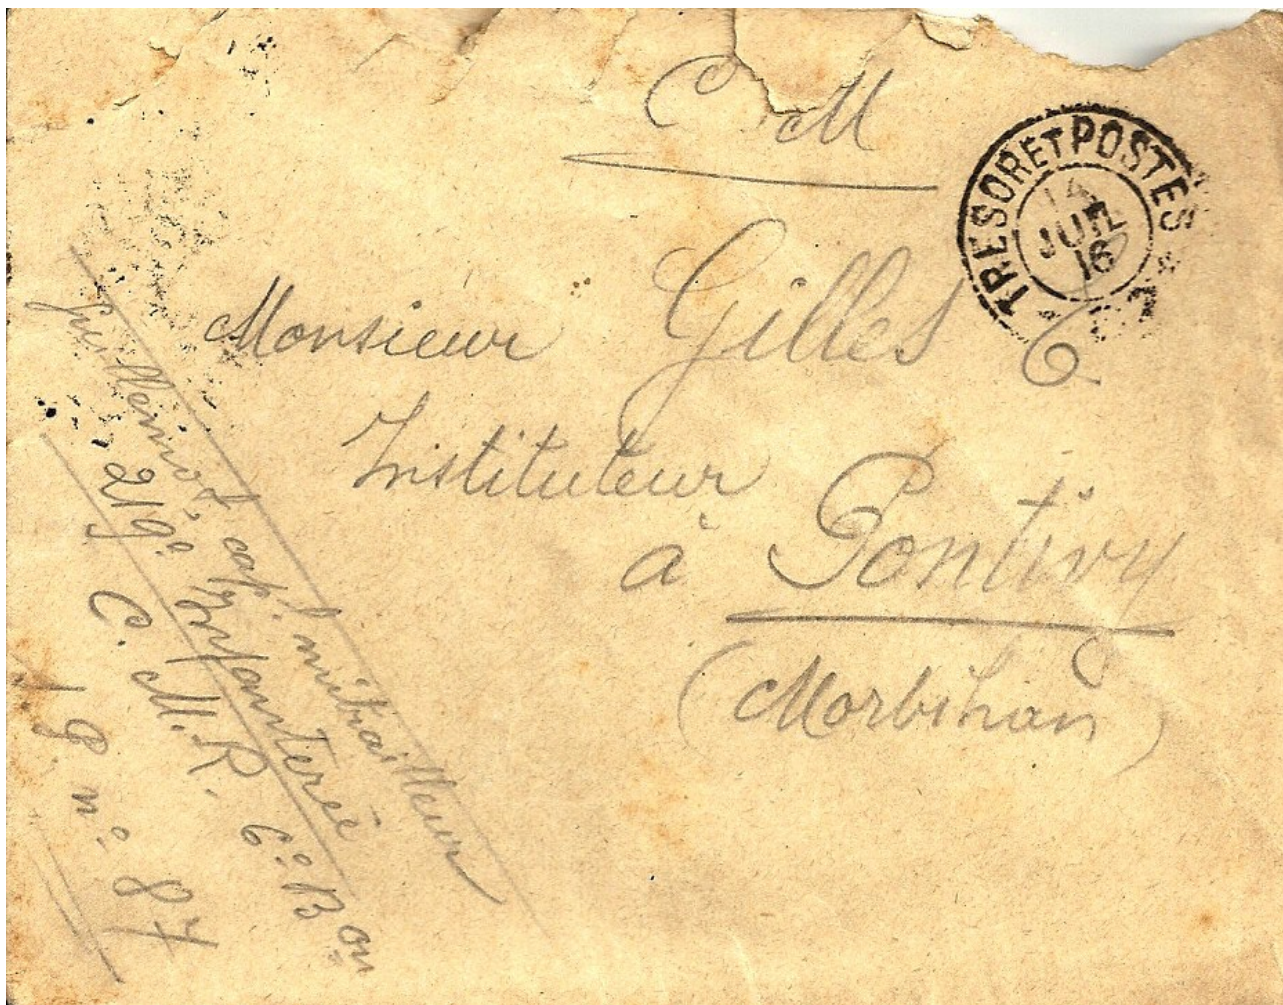 C M
TRESOR ET POSTES
14
JUIL
16
Monsieur Gilles
Instituteur
à Pontivy
(Morbihan)
Guillemot, cap.l mitrailleur
219e Infanterie
C. M. R. 6e Bon
19 no 87